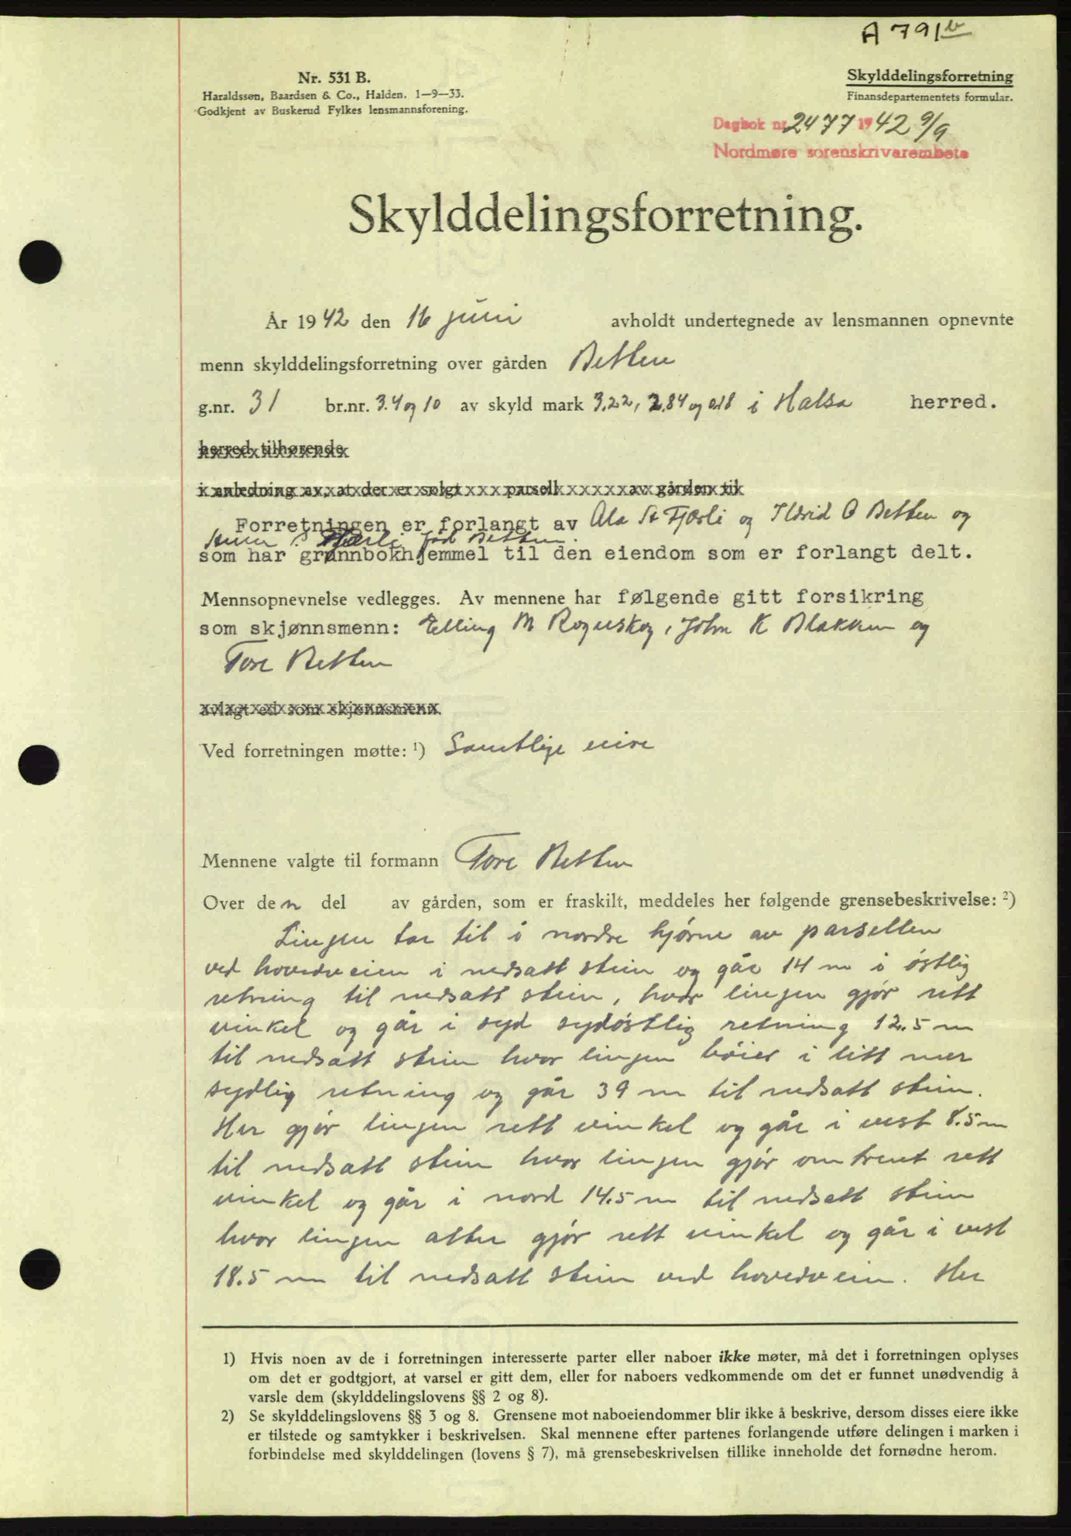 A 791 b
Nr. 531 B.
Haraldssøn, Baardsen & Co., Halden. 1—9—33.
Godkjent av Buskerud Fylkes lensmannsforening.
Skylddelingsforretning
Finansdepartementets formular.
Dagbok nr. 2477 1942 9/9
Nordmøre sorenskrivarembete
Skylddelingsforretning.
År 1942 den 16 juni avholdt undertegnede av lensmannen opnevnte
menn skylddelingsforretning over gården Betten
g.nr. 31 br.nr. 3.4 og 10 av skyld mark 3.22, 2.84 og 0.18 i Halsa herred.
herred tilhørende
i anledning av, at der er solgt parsell av gården til
Forretningen er forlangt av Ola St Fjærli og Ildrid O Betten og
S. Fjærli født Betten.
som har grunnbokhjemmel til den eiendom som er forlangt delt.
Mennsopnevnelse vedlegges. Av mennene har følgende gitt forsikring
som skjønnsmenn: Elling M Rognskog, John K Blakken og
Tore Betten
avlagt ed som skjønnsmenn.
Ved forretningen møtte: ¹) Samtlige eiere
Mennene valgte til formann Tore Betten
Over den del av gården, som er fraskilt, meddeles her følgende grensebeskrivelse: ²)
Linjen tar til i nordre hjørne av parsellen
ved hovedveien i nedsatt stein og går 14 m i østlig
retning til nedsatt stein, hvor linjen gjør rett
vinkel og går i syd sydøstlig retning 12.5 m
til nedsatt stein hvor linjen bøier i litt mer
sydlig retning og går 39 m til nedsatt stein.
Her gjør linjen rett vinkel og går i vest 8.5 m
til nedsatt stein hvor linjen gjør omtrent rett
vinkel og går i nord 14.5 m til nedsatt stein
hvor linjen atter gjør rett vinkel og går i vest
18.5 m til nedsatt stein ved hovedveien. Her
1) Hvis noen av de i forretningen interesserte parter eller naboer ikke møter, må det i forretningen oplyses
om det er godtgjort, at varsel er gitt dem, eller for naboers vedkommende om det er funnet unødvendig å
varsle dem (skylddelingslovens §§ 2 og 8).
2) Se skylddelingslovens §§ 3 og 8. Grensene mot naboeiendommer blir ikke å beskrive, dersom disses eiere ikke
er tilstede og samtykker i beskrivelsen. Skal mennene efter partenes forlangende utføre delingen i marken i
forbindelse med skylddelingen (lovens § 7), må grensebeskrivelsen tillike inneholde det fornødne herom.